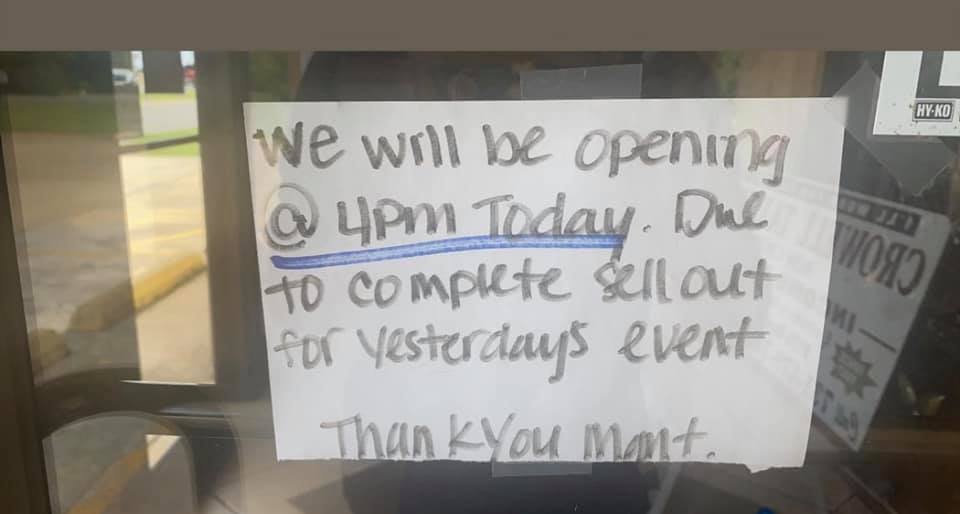 We will be opening
@ 4pm Today. Due
to complete sell out
for yesterday's event
Thank You Mgnt.
HY-KO
CROW
IN